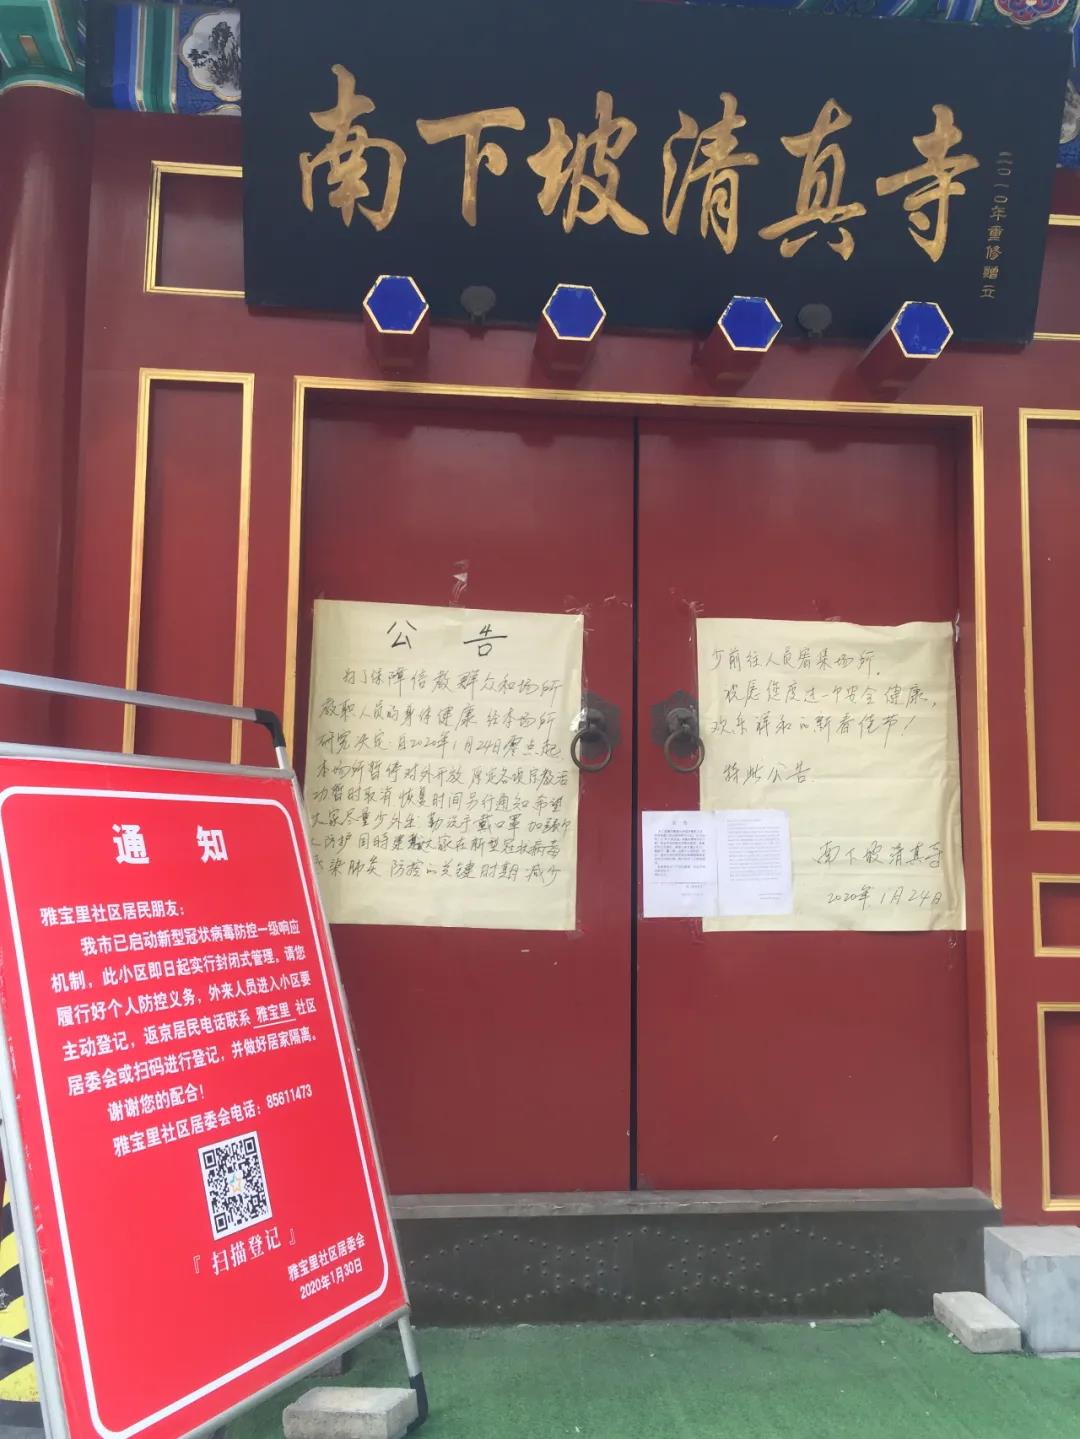 南下坡清真寺
二〇一〇年重修赠立
公告
为了保障信教群众和场所
教职人员的身体健康 经本场所
研究决定:自2020年1月24日零点起,
本场所暂停对外开放 原定各项宗教活
动暂时取消 恢复时间另行通知 希望
大家尽量少外出 勤洗手 戴口罩 加强个
人防护 同时 大家在新型冠状病毒
感染肺炎 防控的关键时期 减少
少前往人员密集场所.
祝愿您度过一个安全 健康,
欢乐祥和的新春佳节!
特此公告.
南下坡清真寺
2020年1月24日
通知
雅宝里社区居民朋友:
我市已启动新型冠状病毒防控一级响应
机制,此小区即日起实行封闭式管理。请您
履行好个人防控义务,外来人员进入小区要
主动登记,返京居民电话联系 雅宝里 社区
居委会或扫码进行登记,并做好居家隔离。
谢谢您的配合!
雅宝里社区居委会电话:85611473
『 扫描登记 』
雅宝里社区居委会
2020年1月30日